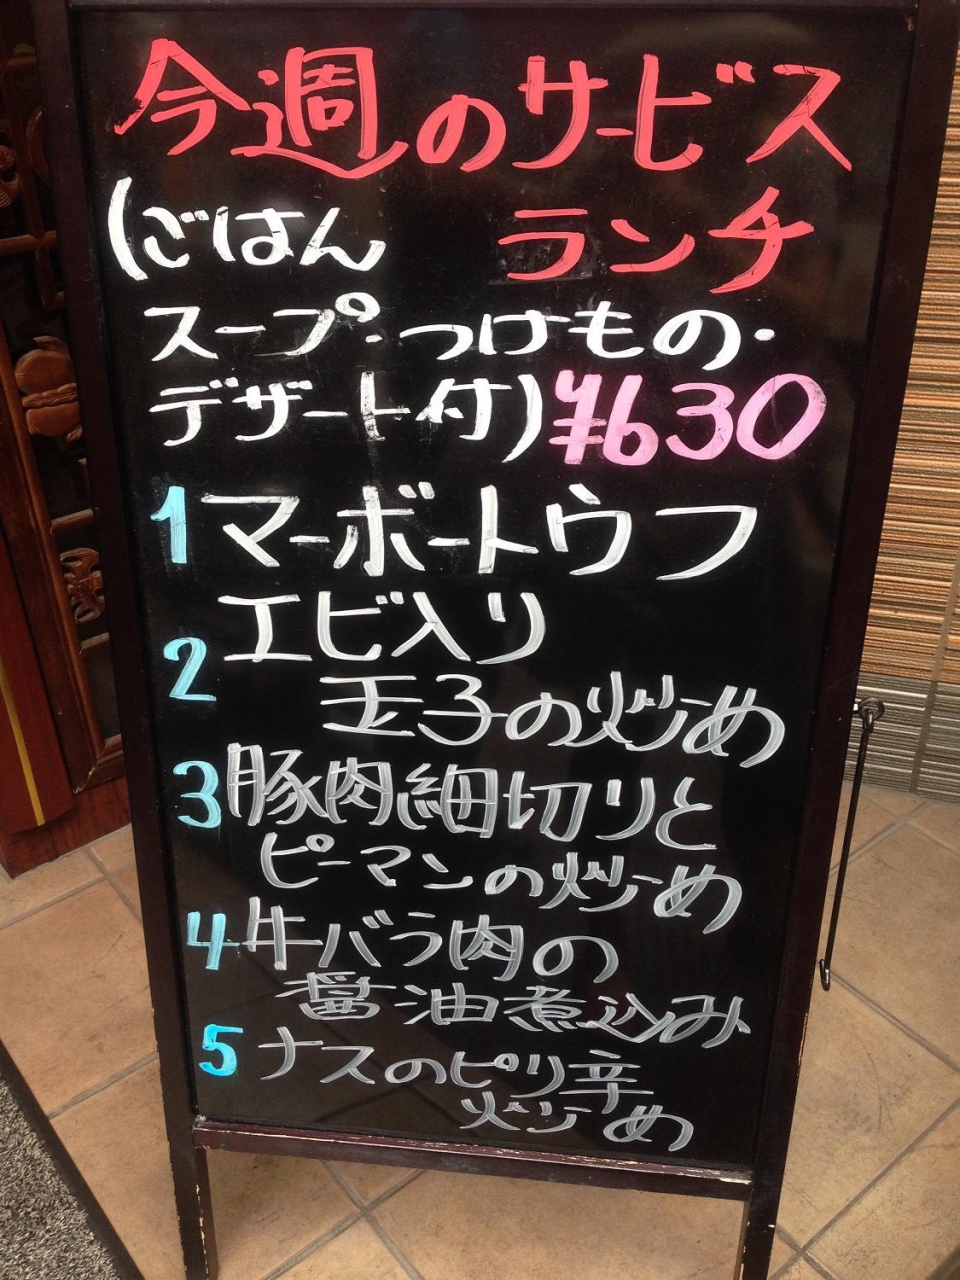 今週のサービス
ランチ
(ごはん
スープ・つけもの・
デザート付)¥630
1 マーボートウフ
2 エビ入り
玉子の炒め
3 豚肉細切りと
ピーマンの炒め
4 牛バラ肉の
醤油煮込み
5 ナスのピリ辛
炒め